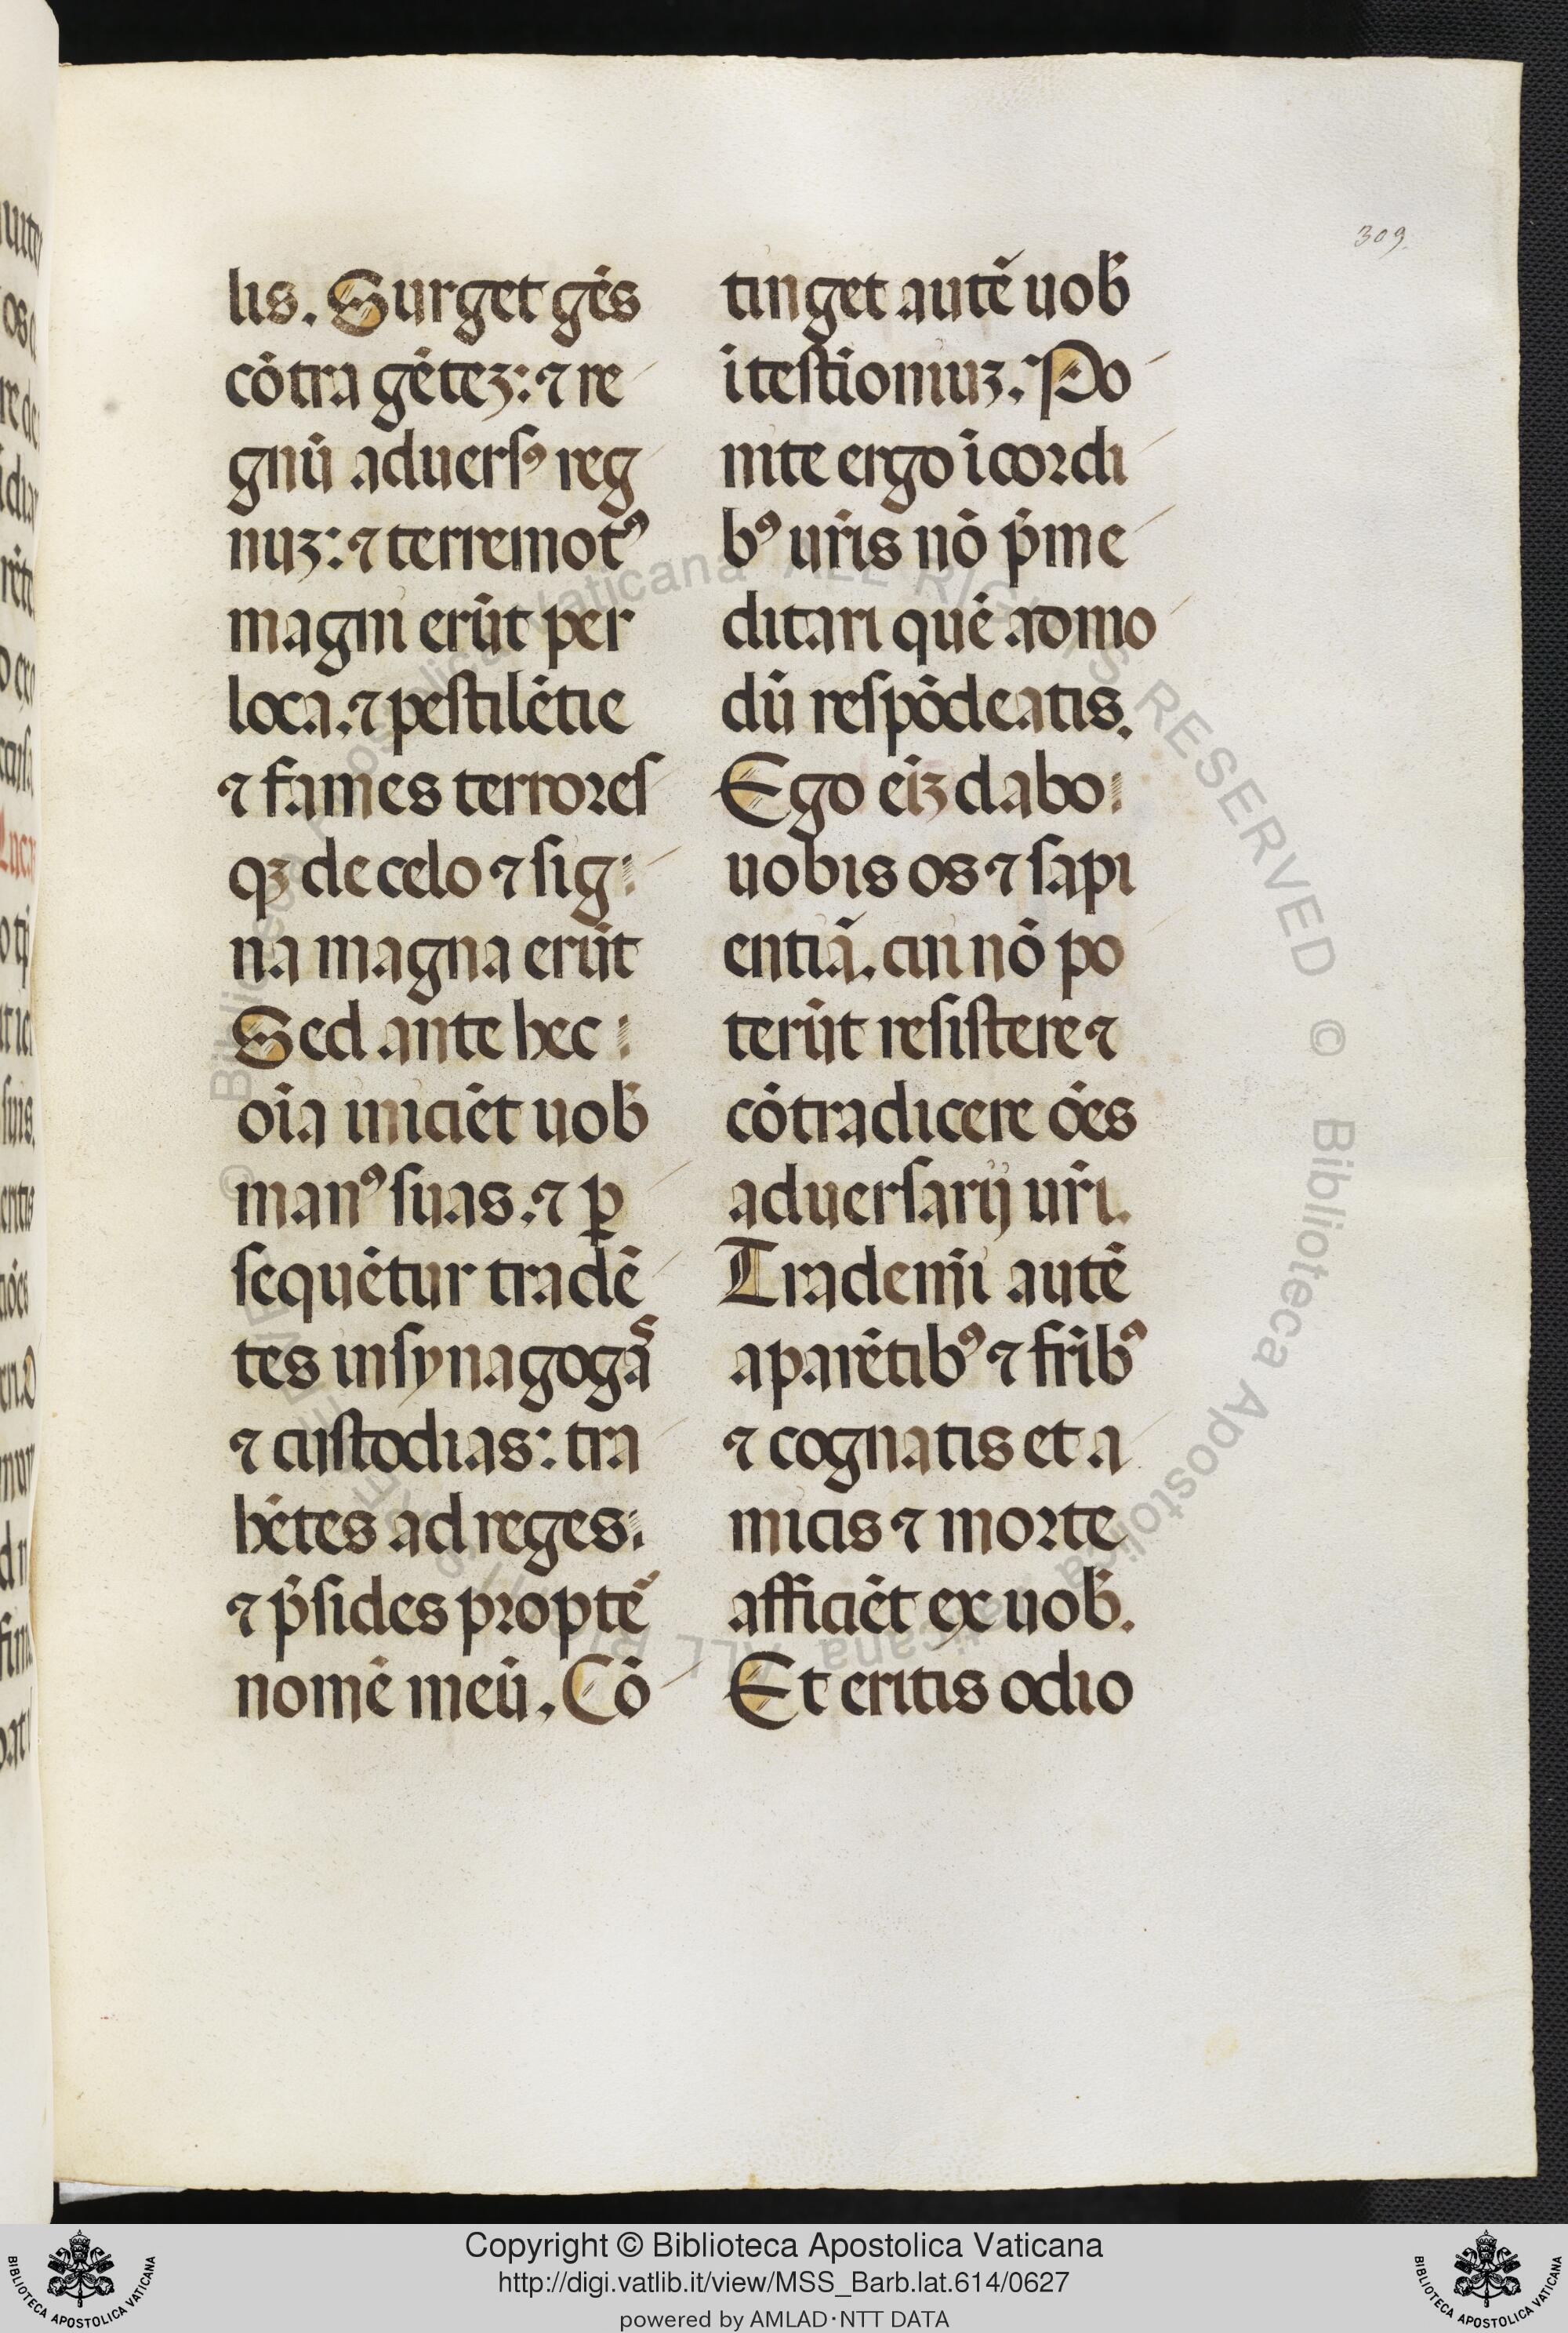 309.
lis. Surget gẽs
cõtra gẽteʒ: ⁊ re
gnũ aduersꝰ reg
nuʒ: ⁊ terremotꝰ
magni erũt per
loca. ⁊ pestilẽtie
⁊ fames terrores
qʒ de celo ⁊ sig
na magna erũt
Sed ante hec
oĩa iniciẽt uob̃
manꝰ suas. ⁊ ꝑ
sequẽtur tradẽ
tes in synagogas
⁊ custodias: tra
hẽtes ad reges.
⁊ p̃sides proptẽ
nomẽ meũ. Cõ
tinget autẽ uob̃
ĩ testĩoniuʒ. Po
nite ergo ĩ cordi
bꝰ ur̃is nõ p̃me
ditari quẽ admo
dũ respõdeatis.
Ego eĩʒ dabo
uobis os ⁊ sapi
entiã. cui nõ po
terũt resistere ⁊
cõtradicere oẽs
aduersarij ur̃i.
Trademĩ autẽ
a parẽtibꝰ ⁊ fr̃ibꝰ
⁊ cognatis et a
micis ⁊ morte
afficiẽt ex uob̃.
Et eritis odio
© Biblioteca Apostolica Vaticana ALL RIGHTS RESERVED
© Biblioteca Apostolica Vaticana ALL RIGHTS RESERVED
Copyright © Biblioteca Apostolica Vaticana
http://digi.vatlib.it/view/MSS_Barb.lat.614/0627
powered by AMLAD·NTT DATA
BIBLIOTECA APOSTOLICA VATICANA
BIBLIOTECA APOSTOLICA VATICANA